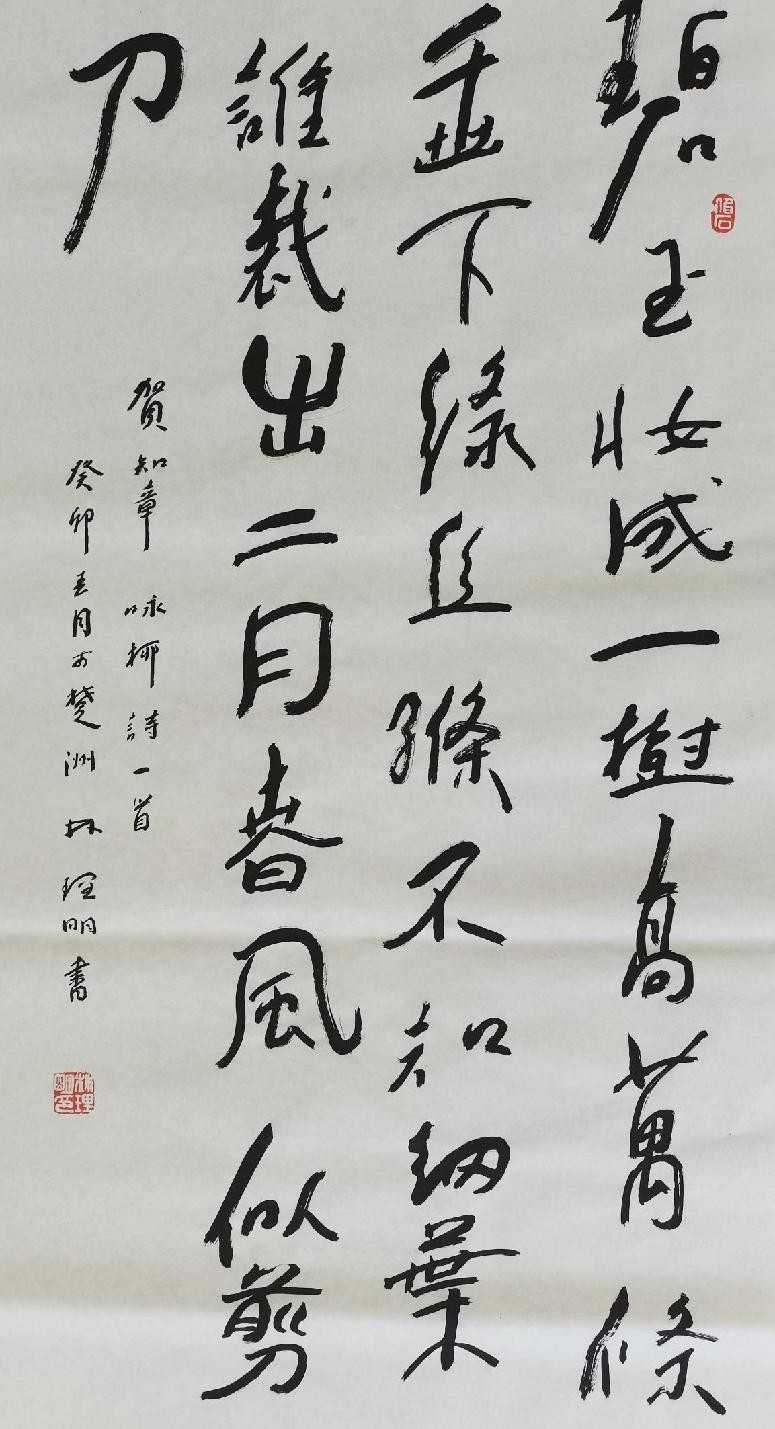 碧玉妝成一樹高萬條
垂下綠丝縧不知細葉
誰裁出二月春風似剪
刀
賀知章 咏柳詩一首
癸卯 月於楚洲 林理明書
林理明印